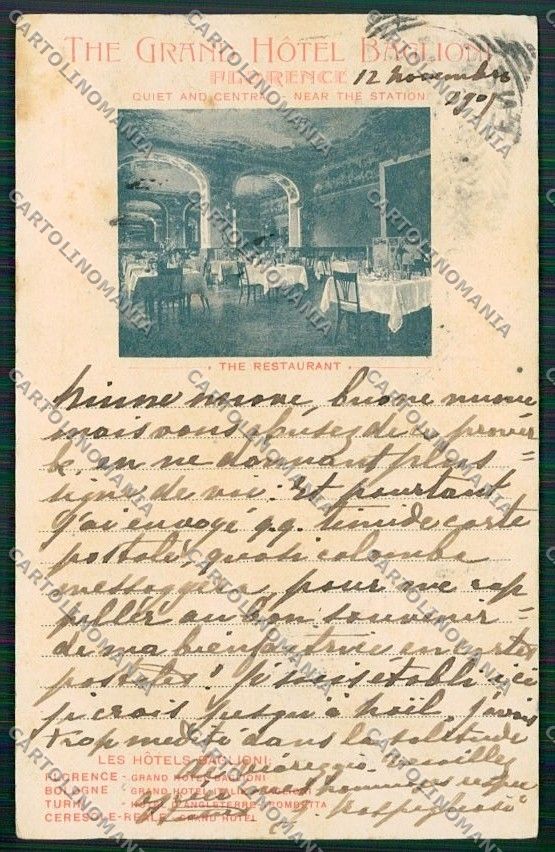 THE GRAND HÔTEL BAGLIONI
FLORENCE
12 novembre
QUIET AND CENTRAL - NEAR THE STATION
THE RESTAURANT
buone nuove
mais vous abusez de ce prover
be, en ne donnant plus
signe de vie. Et pourtant
j'ai envoyé q.q. timide carte
postale, quasi colombe
messagère, pour me rap
peller au bon souvenir
de ma bienfaitrice en cartes
postales! Je suis établi ici
je crois jusqu'à Noël. J'avais
trop médité dans la solitude
LES HÔTELS BAGLIONI:
Veuillez
FLORENCE - GRAND HOTEL BAGLIONI
BOLOGNE - GRAND HOTEL ITALIE BAGLIONI
TURIN - HOTEL D'ANGLETERRE TROMBETTA
CERESOLE-REALE - GRAND HOTEL
CARTOLINOMANIA